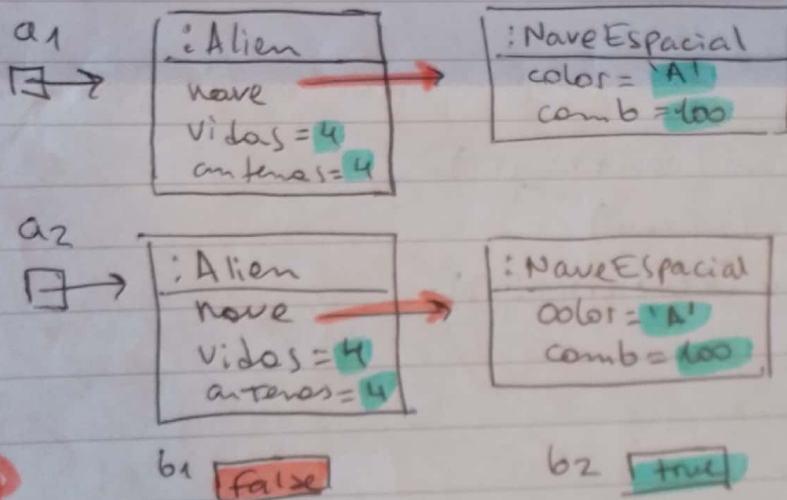 a1
:Alien
nave
vidas = 4
antenas = 4
:NaveEspacial
color = 'A'
comb = 100
a2
:Alien
nave
vidas = 4
antenas = 4
:NaveEspacial
color = 'A'
comb = 100
b1 false
b2 true